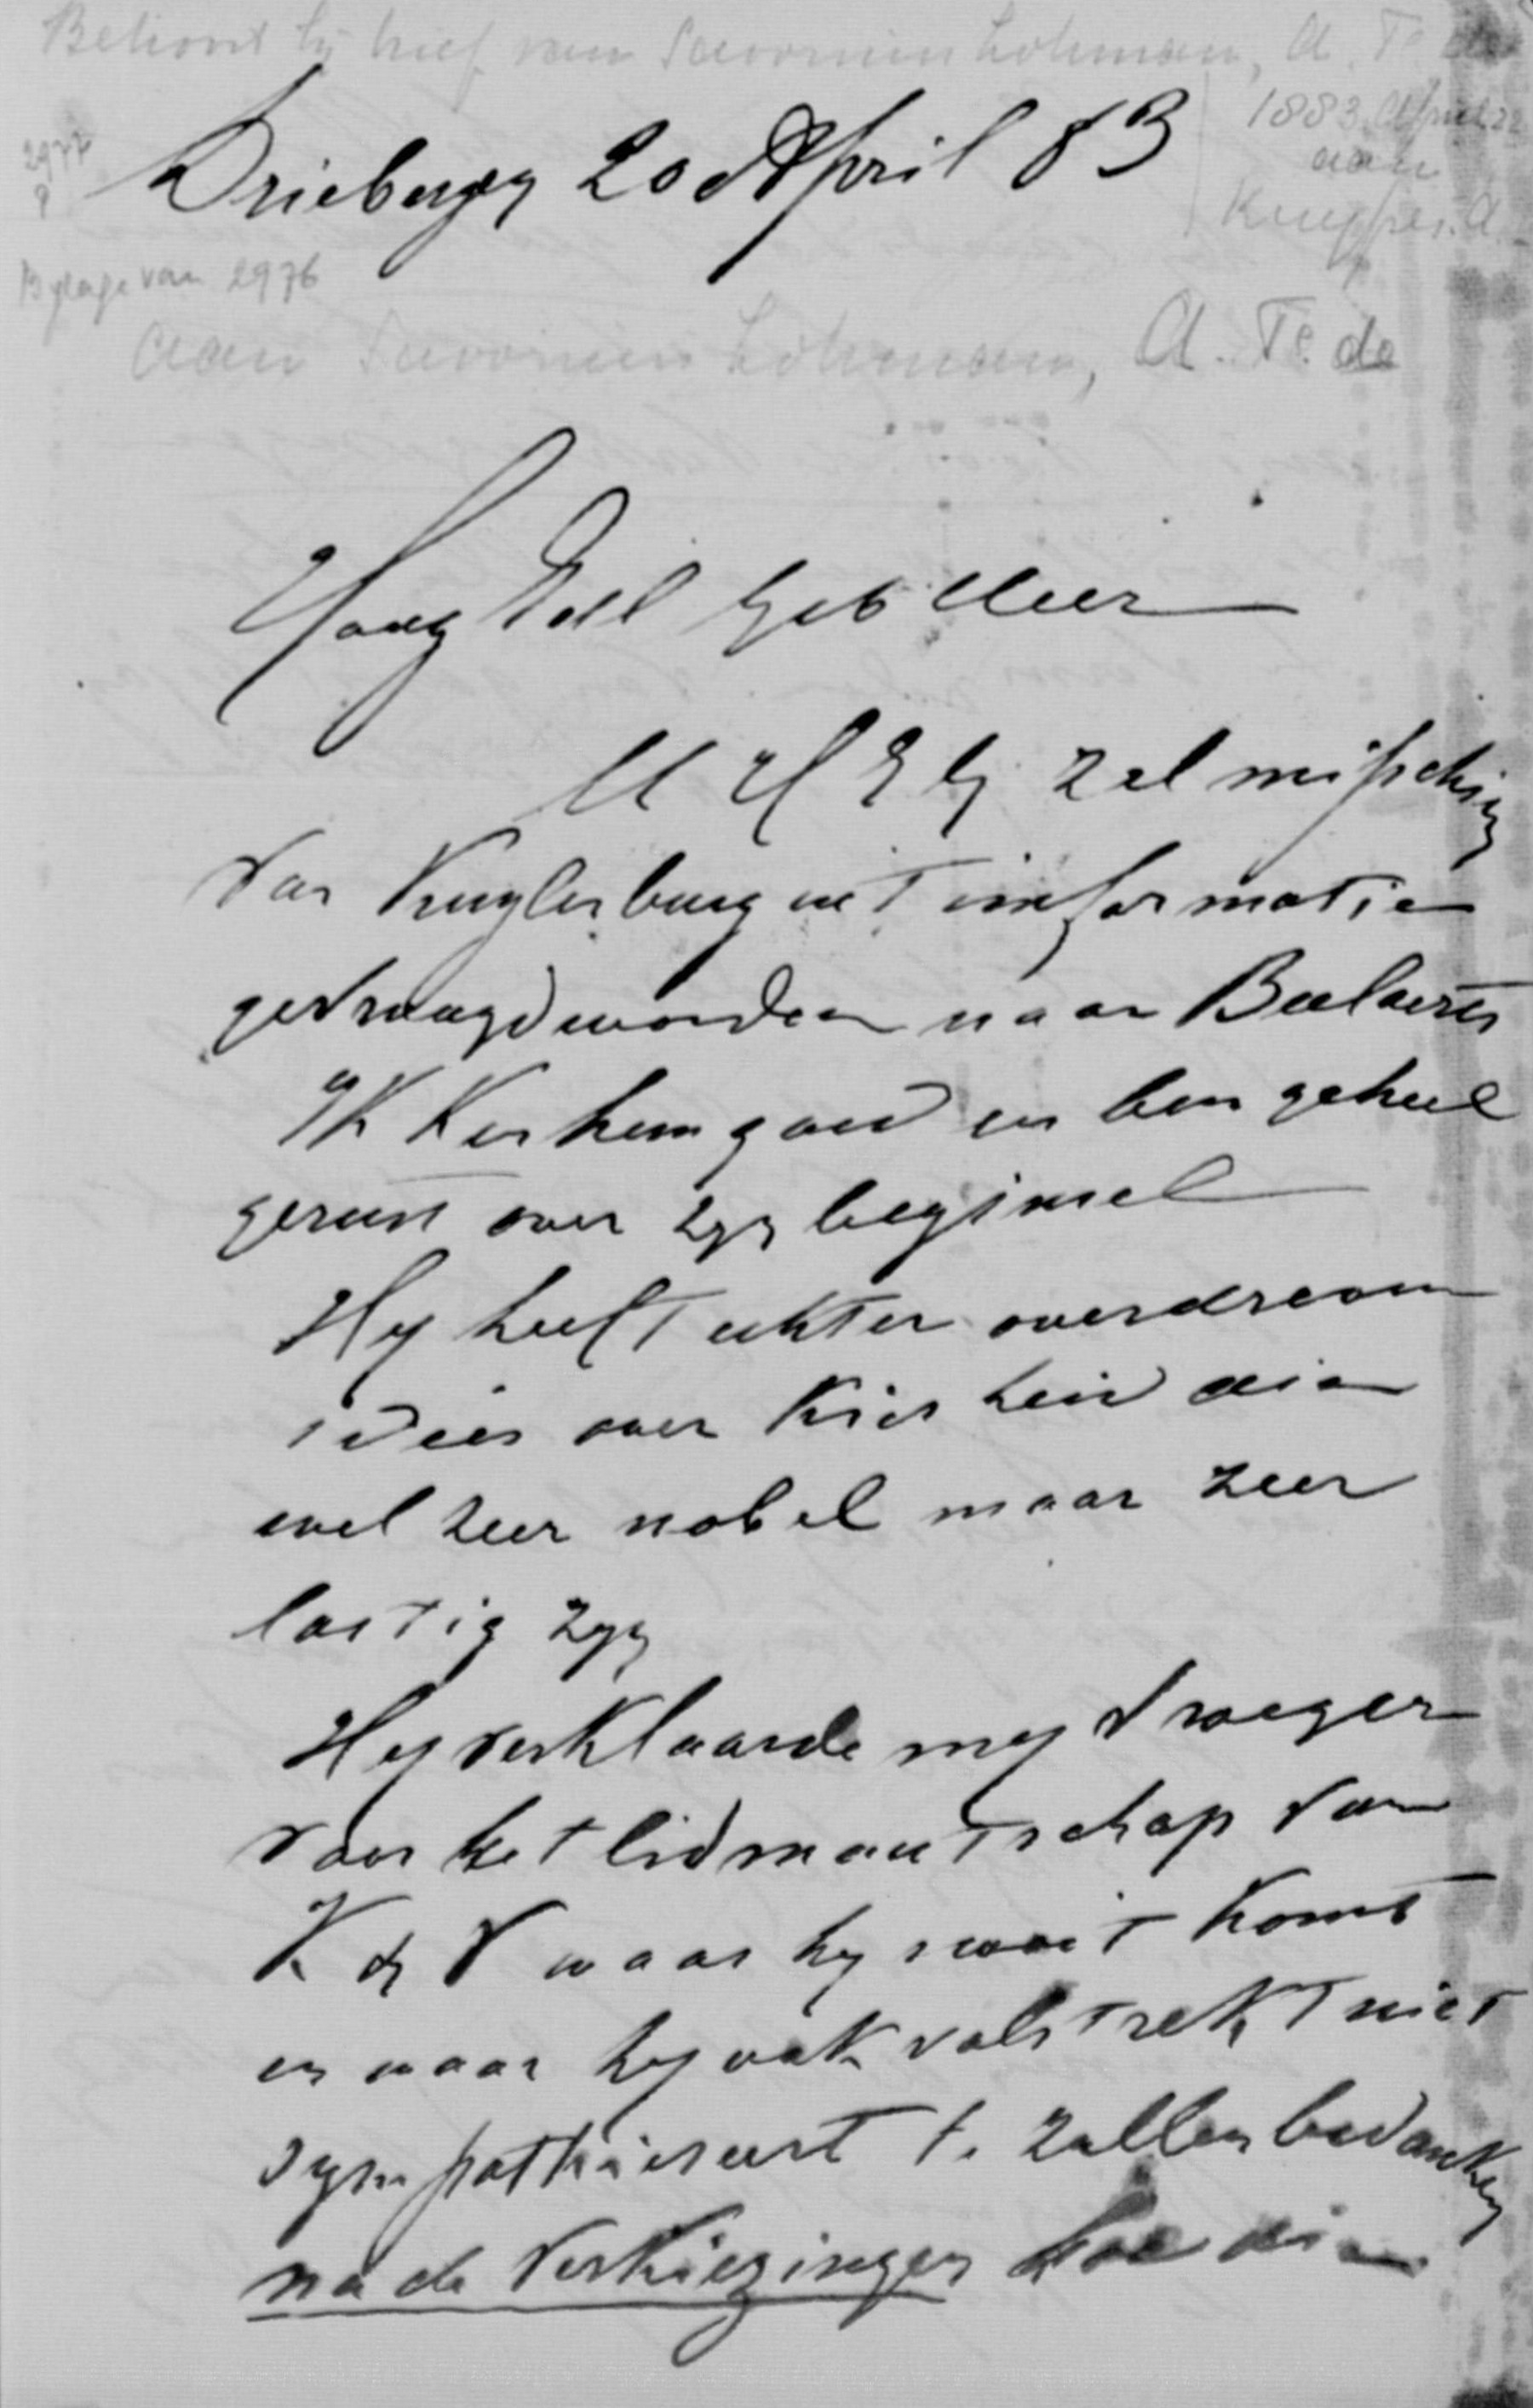 Behoort bij brief van Savornin Lohman, A. F. de
1883 April 22
aan
Kuyper. A.
2977
Driebergen 20 April 83
Bylage van 2976
Aan Savornin Lohman, A. F. de
Hoog Edel Geb Heer
U H E G zal misschien
van Kuylenburg uit informatie
gevraagd worden naar Beelaerts
Ik ken hem goed en ben geheel
gerust over zyn beginsel
Hy heeft echter overdreven
idees over kiesheid die
wel zeer nobel maar zeer
lastig zyn
Hy verklaarde my vroeger
voor het lidmaatschap van
K & V waar hy nooit komt
en waar hy ook volstrekt niet
sympathiseert te zullen bedanken
na de verkiezingen hoe die